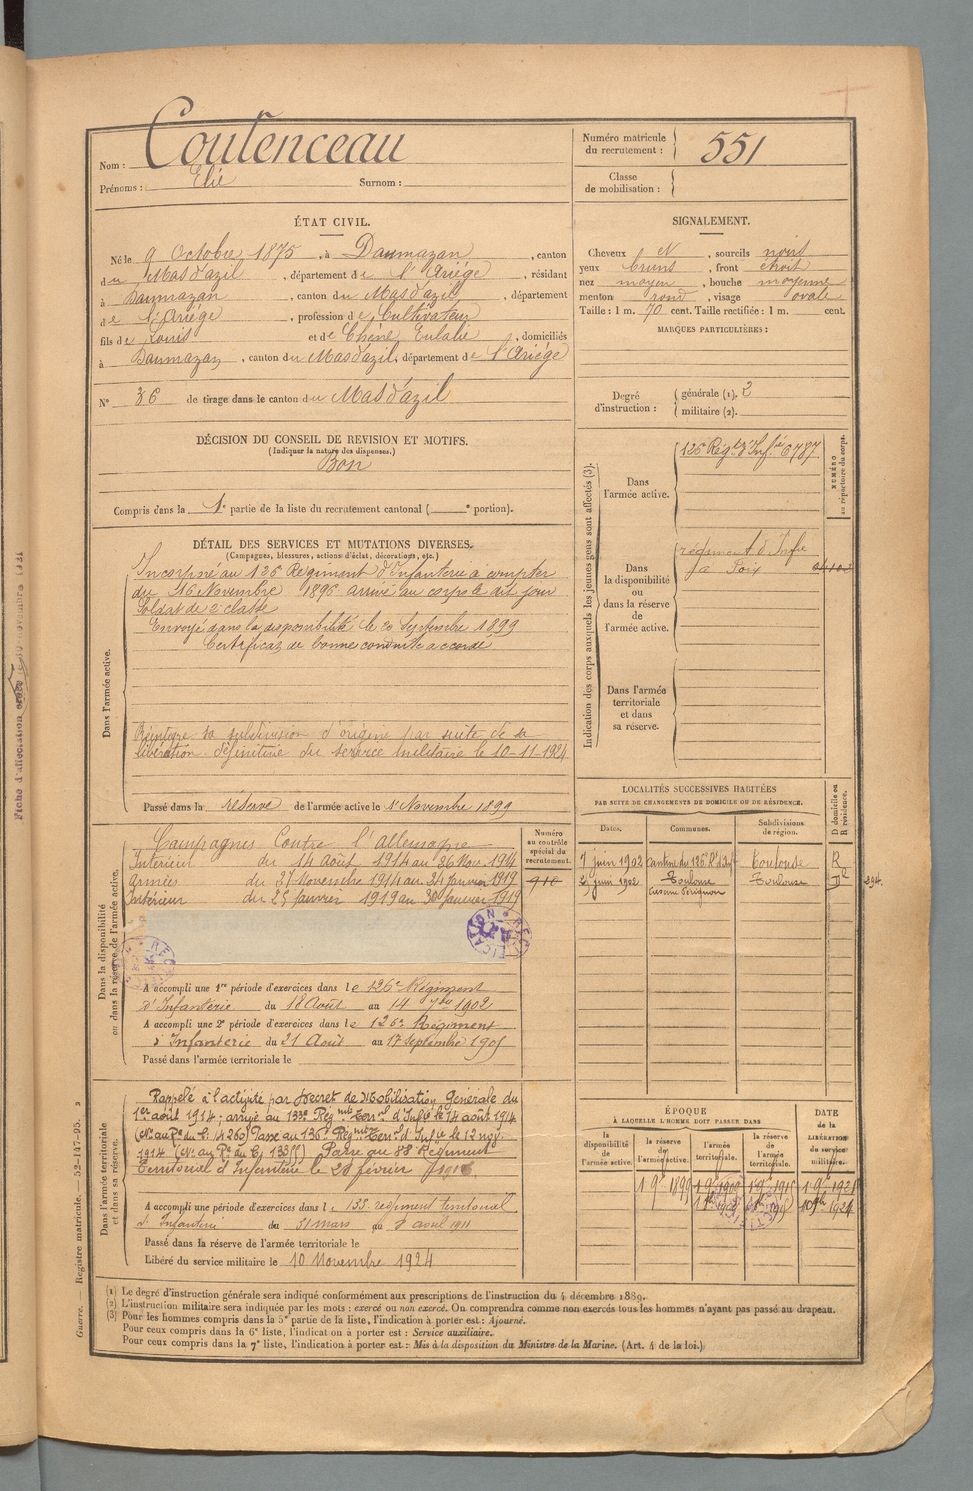 Nom : Coutenceau
Prénoms : Elie Surnom :
Numéro matricule du recrutement : 551
Classe de mobilisation :
ÉTAT CIVIL.
Né le 9 Octobre 1875, à Daumazan, canton
du Mas d'azil, département de l'Ariége, résidant
à Daumazan, canton du Mas d'azil, département
de l'Ariége, profession de Cultivateur
fils de Louis et de Chêne Eulalie, domiciliés
à Daumazan, canton du Mas d'azil, département de l'Ariége
N° 36 de tirage dans le canton du Mas d'azil
SIGNALEMENT.
Cheveux et, sourcils noirs
yeux bruns, front étroit
nez moyen, bouche moyenne
menton rond, visage ovale
Taille : 1 m. 70 cent. Taille rectifiée : 1 m. cent.
MARQUES PARTICULIÈRES :
Degré d'instruction : générale (1). 2
militaire (2).
DÉCISION DU CONSEIL DE REVISION ET MOTIFS.
(Indiquer la nature des dispenses.)
Bon
Compris dans la 1e partie de la liste du recrutement cantonal ( e portion).
DÉTAIL DES SERVICES ET MUTATIONS DIVERSES.
(Campagnes, blessures, actions d'éclat, décorations, etc.)
Dans l'armée active.
Incorporé au 126 Régiment d'Infanterie à compter
du 16 Novembre 1896 arrivé au corps le dit jour
Soldat de 2e classe
Envoyé dans la disponibilité le 20 Septembre 1899
Certificat de bonne conduite accordé
Réintègre sa subdivision d'origine par suite de sa
libération définitive du service militaire le 10-11-1924
Passé dans la réserve de l'armée active le 1er Novembre 1899
Indication des corps auxquels les jeunes gens sont affectés (3).
NUMÉRO au répertoire du corps.
Dans l'armée active.
126 Régt d'Infie 6787
Dans la disponibilité ou dans la réserve de l'armée active.
régiment d'Infie
Dans l'armée territoriale et dans sa réserve.
LOCALITÉS SUCCESSIVES HABITÉES
PAR SUITE DE CHANGEMENTS DE DOMICILE OU DE RÉSIDENCE.
Dates. Communes. Subdivisions de région. D domicile ou R résidence.
7 juin 1902 Cantine du 126e Rt d'Infie Toulouse R
2 juin 1902 Toulouse Toulouse D
294.
Dans la disponibilité ou dans la réserve de l'armée active.
Numéro au contrôle spécial du recrutement.
910
Campagnes Contre l'allemagne
Intérieur du 14 Août 1914 au 26 Nov. 1914
Armées du 27 Novembre 1914 au 24 janvier 1919
Intérieur du 25 janvier 1919 au 30 janvier 1919
RECTIFICATION
A accompli une 1re période d'exercices dans le 126e Régiment
d'Infanterie du 18 Août au 14 7bre 1902
A accompli une 2e période d'exercices dans le 126e Régiment
d'Infanterie du 21 Août au 17 Septembre 1905
Passé dans l'armée territoriale le
Dans l'armée territoriale et dans sa réserve.
Rappelé à l'activité par Décret de Mobilisation Générale du
1er août 1914; arrivé au 133e Régmt Terrial d'Infie le 14 août 1914
(No au Rc du C. 14260) Passé au 136e Régmt Terrial d'Infie le 12 nov.
1914 Passé au 88e Régiment
Territorial d'Infanterie le 28 février
A accompli une période d'exercices dans le 133e régiment territorial
d'Infanterie du 31 mars au 8 avril 1911
Passé dans la réserve de l'armée territoriale le
Libéré du service militaire le 10 Novembre 1924
ÉPOQUE
À LAQUELLE L'HOMME DOIT PASSER DANS
la disponibilité de l'armée active. la réserve de l'armée active. l'armée territoriale. la réserve de l'armée territoriale. DATE de la LIBÉRATION du service militaire.
1 9bre 1899 1 9bre 1909 1 9bre 1915 1 9bre 1921
10 9bre 1924
(1) Le degré d'instruction générale sera indiqué conformément aux prescriptions de l'instruction du 4 décembre 1889.
(2) L'instruction militaire sera indiquée par les mots : exercé ou non exercé. On comprendra comme non exercés tous les hommes n'ayant pas passé au drapeau.
(3) Pour les hommes compris dans la 5e partie de la liste, l'indication à porter est : Ajourné.
Pour ceux compris dans la 6e liste, l'indication à porter est : Service auxiliaire.
Pour ceux compris dans la 7e liste, l'indication à porter est : Mis à la disposition du Ministre de la Marine. (Art. 4 de la loi.)
Guerre. — Registre matricule. — 52-147-95.